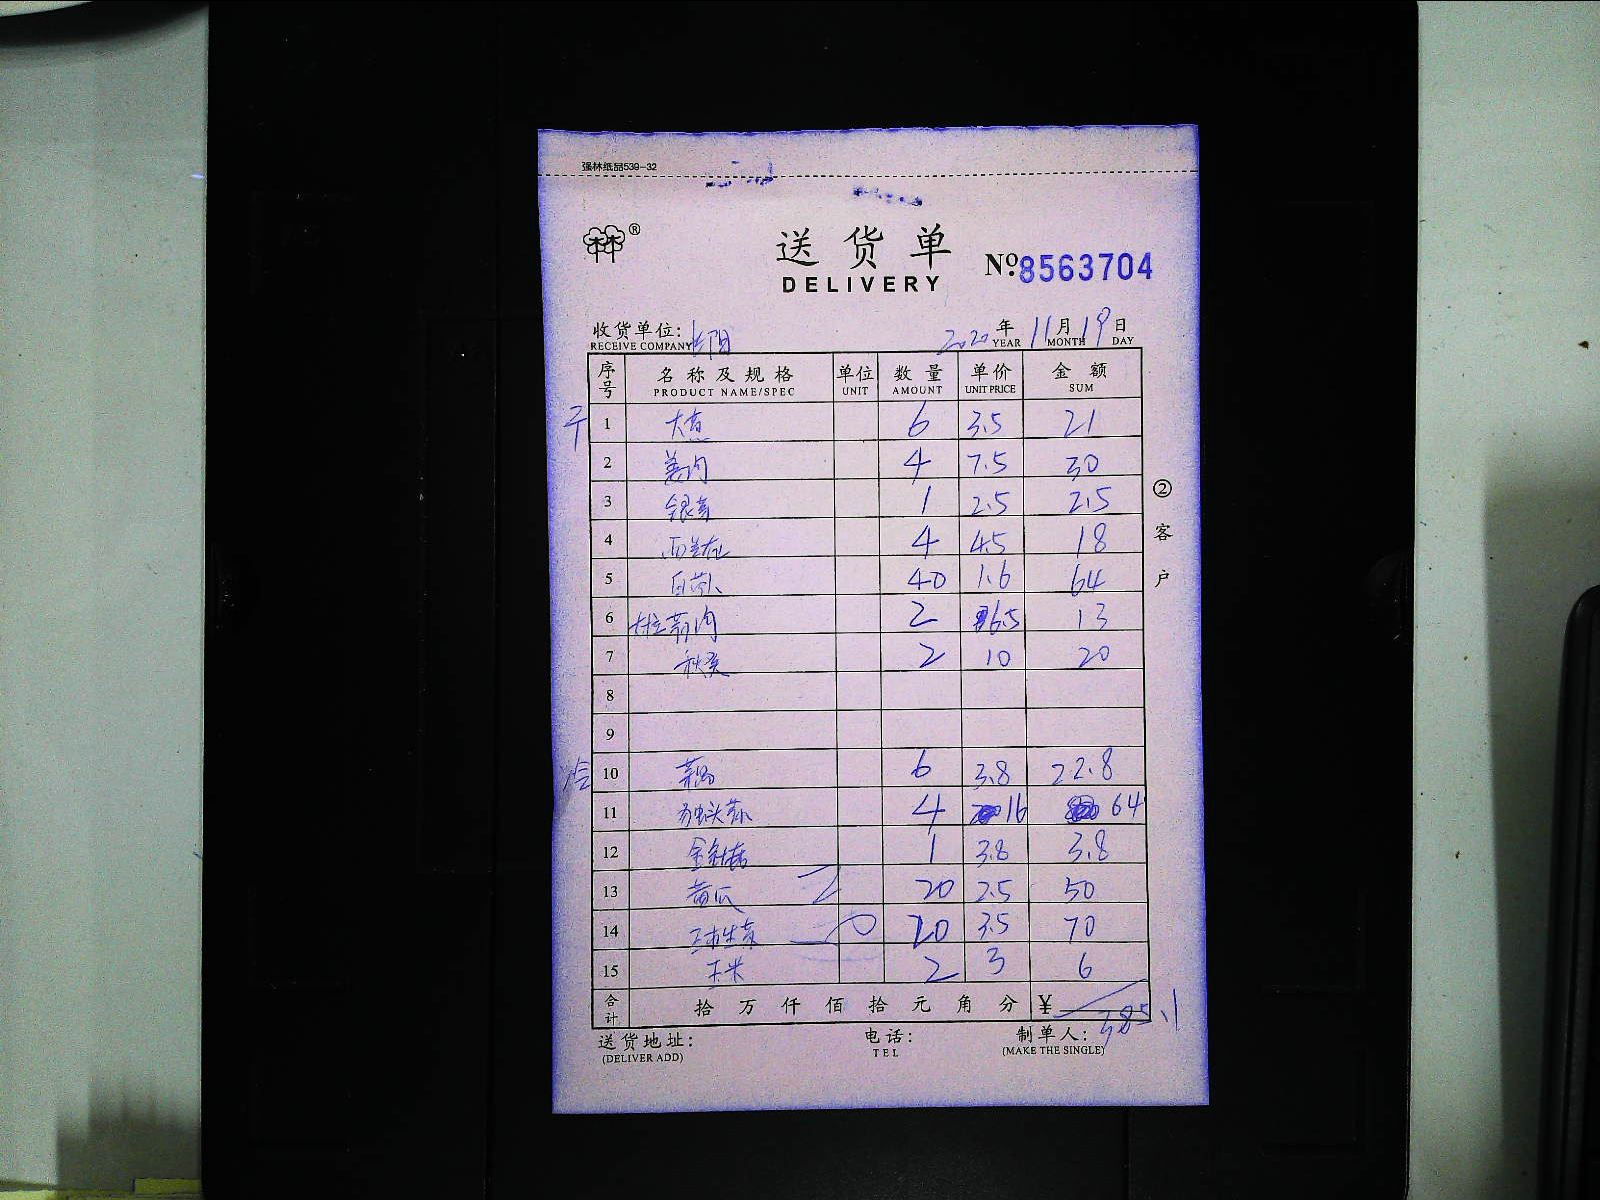 强林纸品539-32
®
送货单
DELIVERY
Nº: 8563704
收货单位: 2020年11月19日
RECEIVE COMPANY YEAR MONTH DAY
序号 名称及规格 单位 数量 单价 金额
PRODUCT NAME/SPEC UNIT AMOUNT UNIT PRICE SUM
1 大葱 6 3.5 21
2 姜肉 4 7.5 30
3 银芽 1 2.5 2.5
4 西兰花 4 4.5 18
5 白萝卜 40 1.6 64
6 2 6.5 13
7 秋葵 2 10 20
8
9
冷 10 6 3.8 22.8
11 独头蒜 4 16 64
12 金针菇 1 3.8 3.8
13 黄瓜 20 2.5 50
14 球生菜 20 3.5 70
15 玉米 2 3 6
合计 拾万仟佰拾元角分 ¥ 385.1
送货地址: 电话: 制单人:
(DELIVER ADD) TEL (MAKE THE SINGLE)
②客户